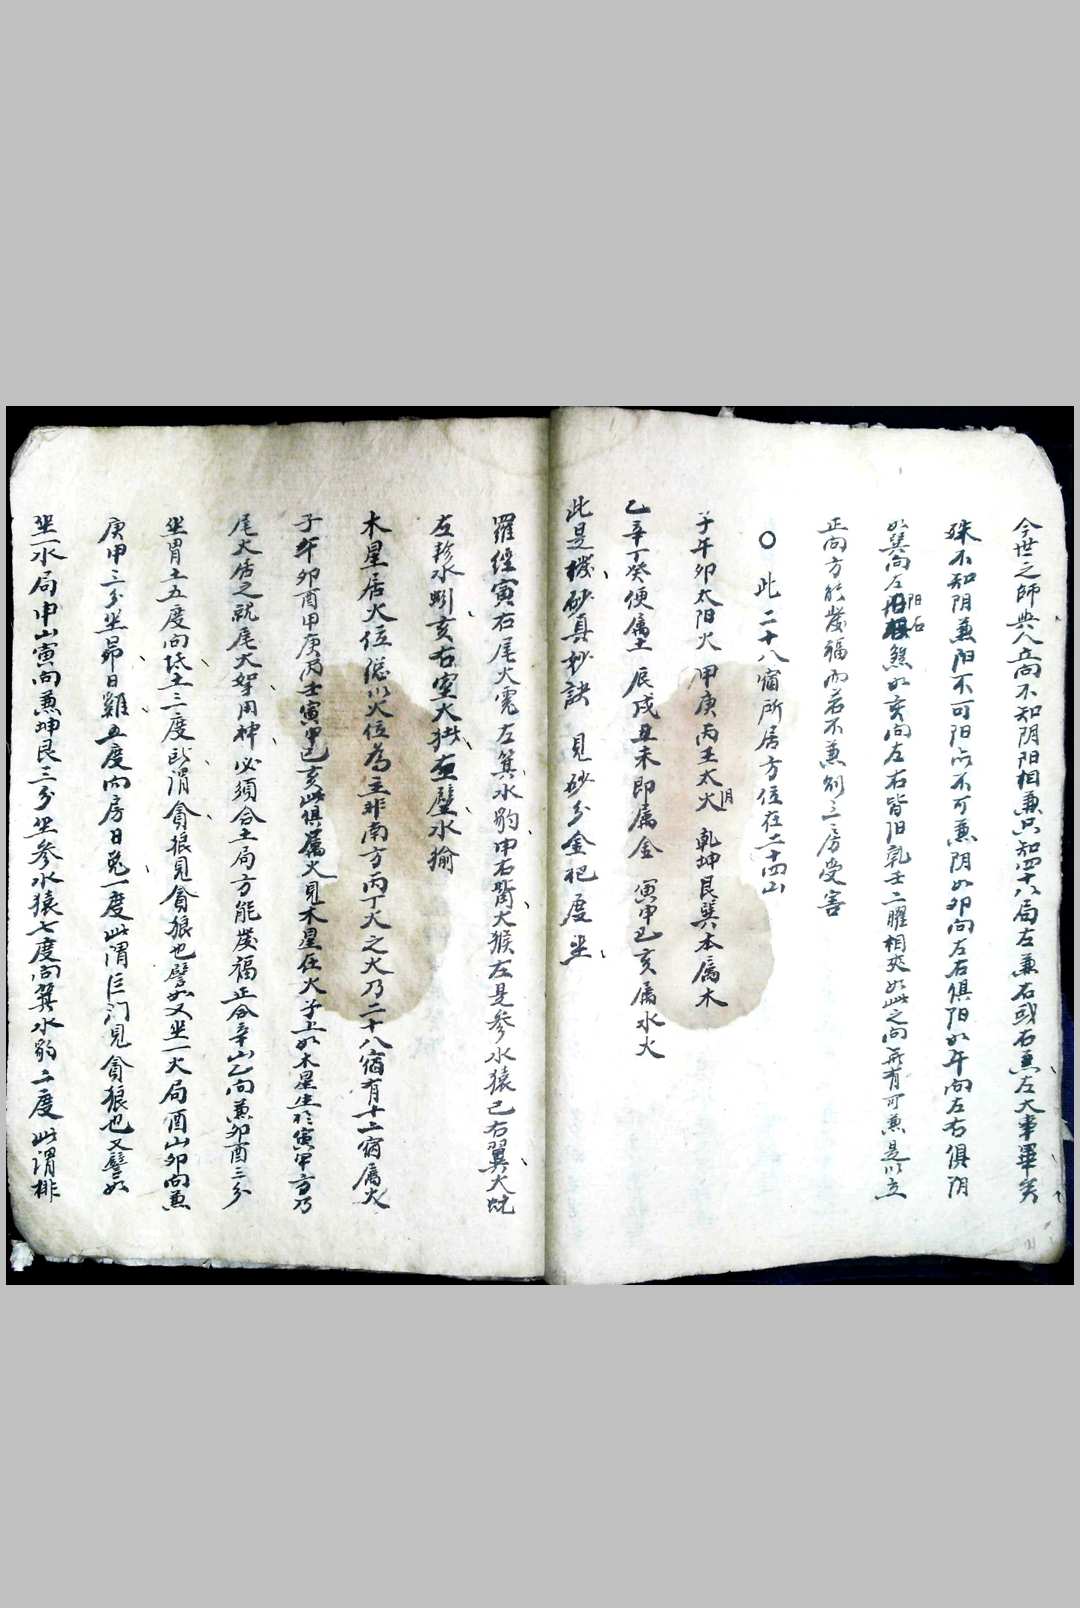 今世之師與人立向不知阴阳相兼只知四十八局左兼右或右兼左大事畢矣
殊不知阴兼阳不可阳亦不可兼阴如卯向左右俱阳如午向左右俱阴
如巽向左阳右煞如亥向左右皆阳乾壬二曜相夾如此之向無有可兼是以立
正向方能發福而若不兼則三房受害
○此二十八宿所居方位在二十四山
子午卯太阳火 甲庚丙壬太月火 乾坤艮巽本属木
乙辛丁癸便属土 辰戌丑未即属金 寅申巳亥属水火
此是機砂真妙訣 見砂分金把度坐
羅經寅右尾火虎左箕水豹申右觜火猴左是參水猿巳右翼火蛇
左軫水蚓亥右室火猪左壁水貐
木星居火位總以火位為主非南方丙丁火之火乃二十八宿有十二宿属火
子午卯酉甲庚丙壬寅申巳亥此俱属火見木星在火子上如木星生於寅甲方乃
尾火居之就尾火作用神必須合土局方能發福正合辛山乙向兼卯酉三分
坐胃土五度向氐土三度所謂貪狼見貪狼也譬如又坐一火局酉山卯向兼
庚甲三分坐昴日雞五度向房日兔一度此謂巨门見貪狼也又譬如
坐一水局申山寅向兼坤艮三分坐參水猿七度向箕水豹二度此謂排